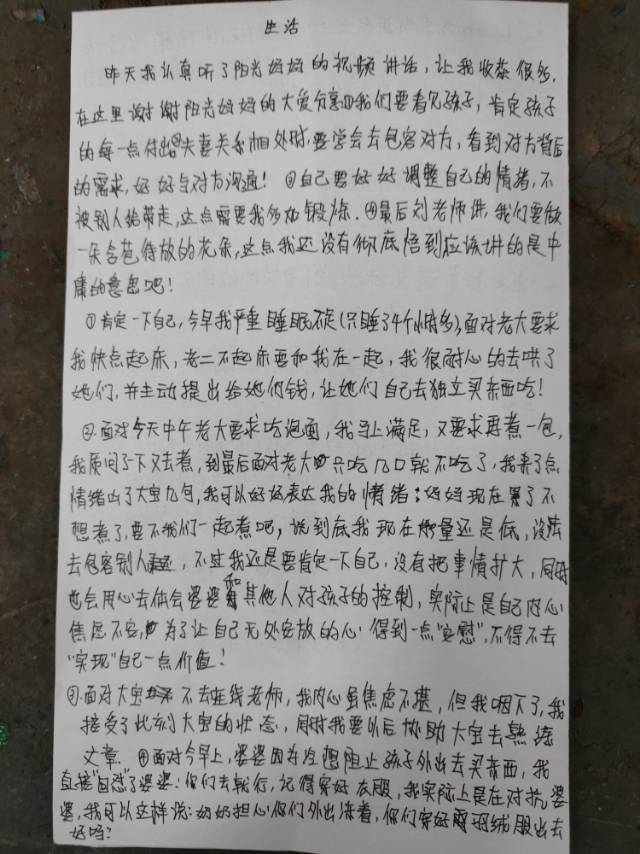 生活
昨天我认真听了阳光妈妈的视频讲话，让我收获很多，
在这里谢谢阳光妈妈的大爱分享①我们要看见孩子，肯定孩子
的每一点付出②夫妻关系相处时，要学会去包容对方，看到对方背后
的需求，好好与对方沟通！③自己要好好调整自己的情绪，不
被别人给带走，这点需要我多加锻炼。④最后刘老师讲，我们要做
一朵含苞待放的花朵，这点我还没有彻底悟到应该讲的是中
庸的意思吧！
①肯定一下自己，今早我严重睡眠不足(只睡了4个小时多)，面对老大要求
我快点起床，老二不起床要和我在一起，我很耐心的去哄了
她们，并主动提出给她们钱，让她们自己去独立买东西吃！
②.面对今天中午老大要求吃泡面，我马上满足，又要求再煮一包，
我质问了下又去煮，到最后面对老大只吃几口就不吃了，我弄了点
情绪凶了大宝几句，我可以好好表达我的情绪：妈妈现在累了不
想煮了，要不我们一起煮吧，说到底我现在能量还是低，没法
去包容别人，不过我还是要肯定一下自己，没有把事情扩大，同时
也会用心去体会婆婆和其他人对孩子的控制，实际上是自己内心
焦虑不安，为了让自己无处安放的心得到一点“安慰”，不得不去
“实现”自己一点价值！
③.面对大宝不去连线老师，我内心虽焦虑不堪，但我咽下了，我
接受了此刻大宝的状态，同时我要以后协助大宝去熟练
文章.④面对今早上，婆婆因为冷想阻止孩子外出去买东西，我
直接“回怼”了婆婆：你们去就行，记得穿好衣服，我实际上是在对抗婆
婆，我可以这样说：奶奶担心你们外出冻着，你们穿好羽绒服出去
好吗？